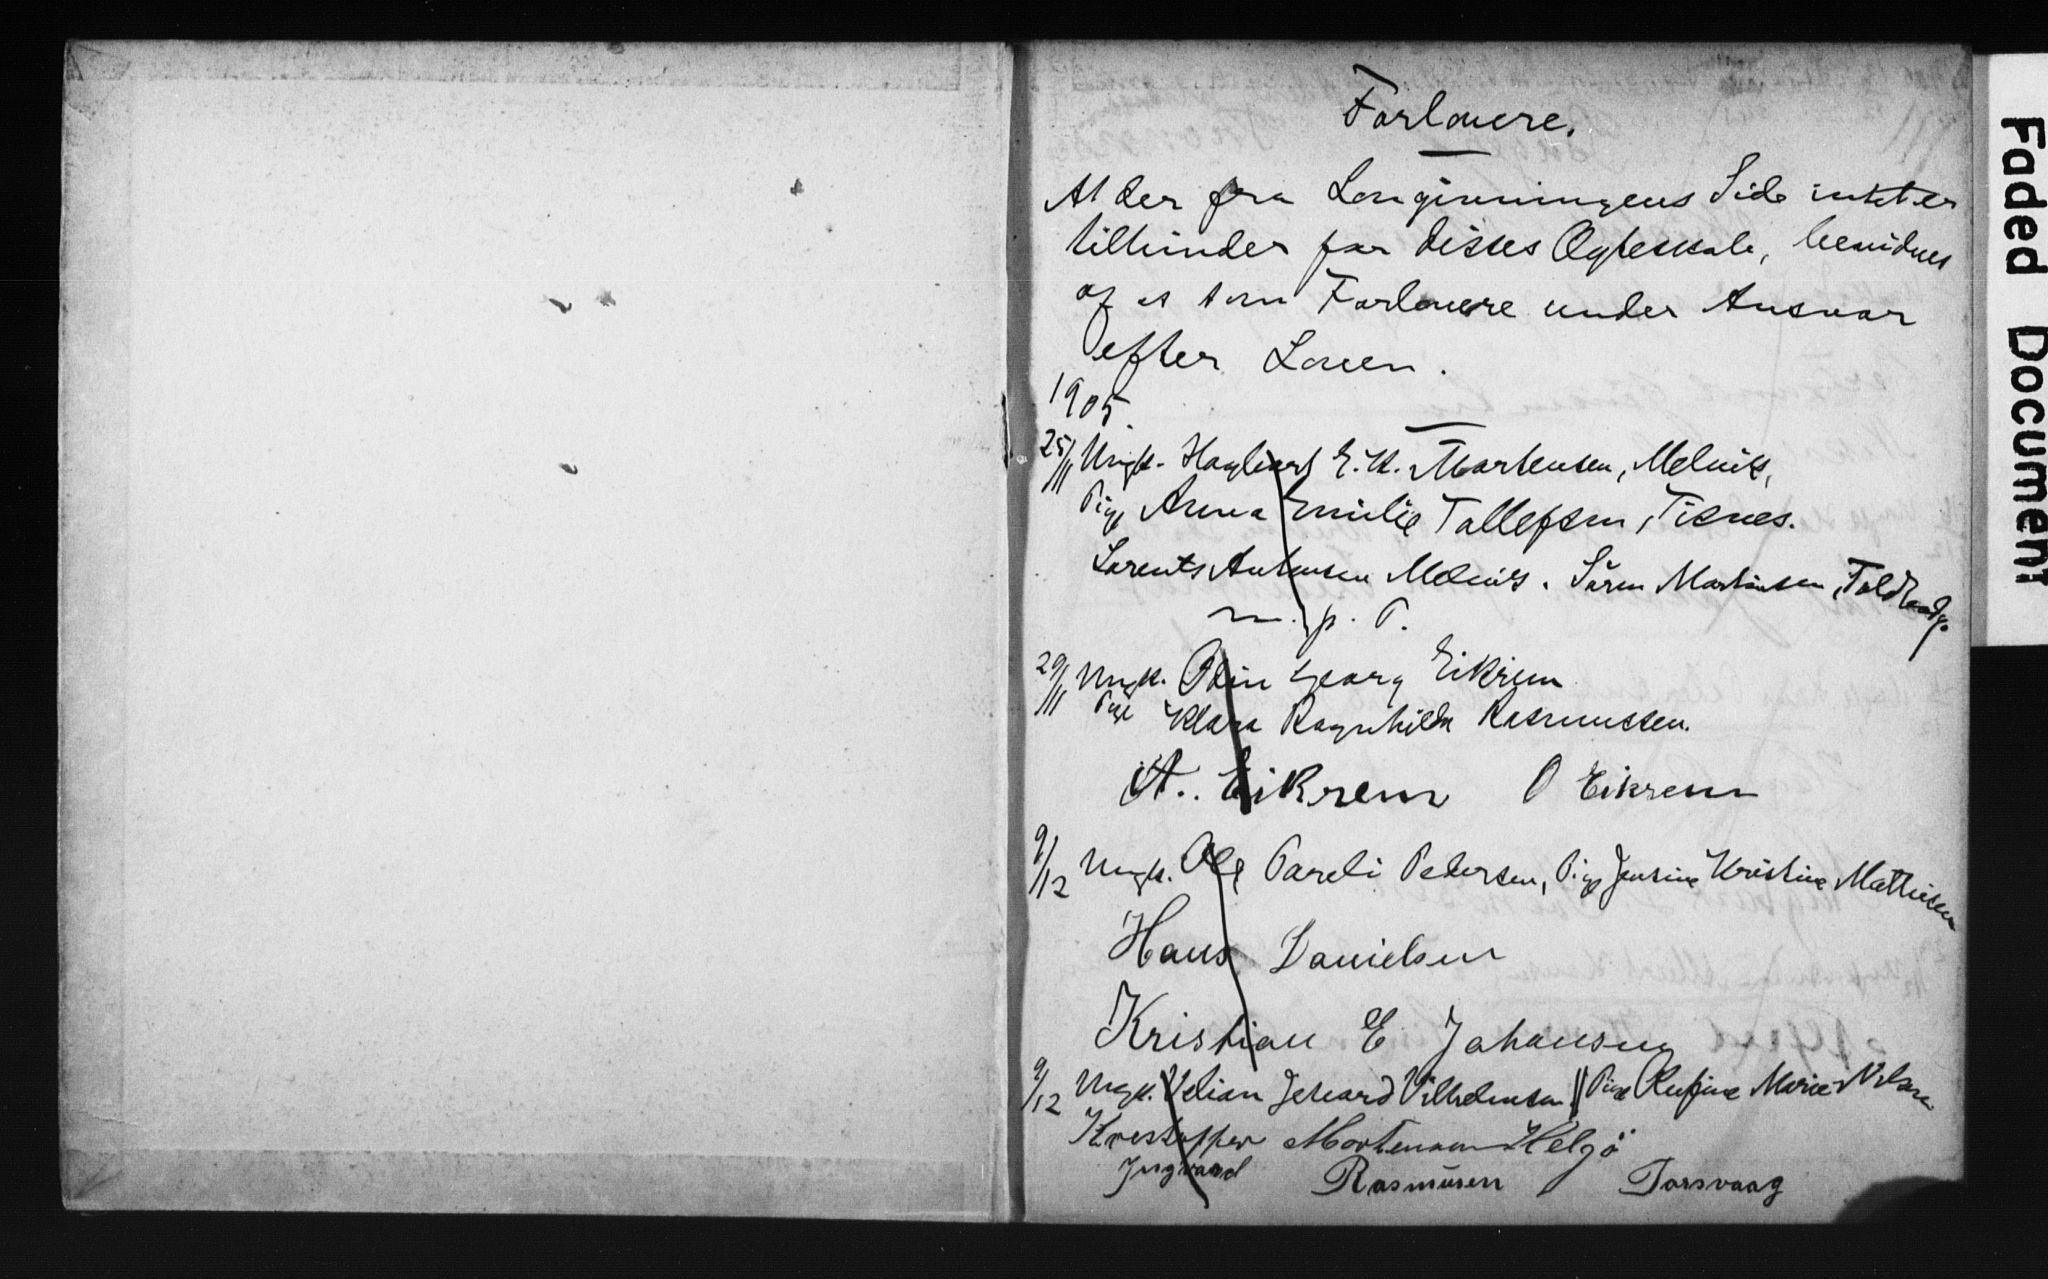 Forlovere.
At der fra Lovgivningens Side intet er
tilhinder for disses Ægteskab, bevidnes
af os som Forlovere under Ansvar
efter Loven.
1905.
25/11 Ungk. Hagbart E. K. Martensen, Melvik,
Pige Anna Emilie Tollefsen, Tisnes.
Lorents Antonsen Melvik. Sören Martinsen,
m. p. P.
29/11 Ungk. Odin Georg Eikrem
Pige Klara Ragnhilda Rasmussen.
A. Eikrem O Eikrem
9/12 Ungk. Ole Pareli Pedersen, Pige Jensine Kristine Mathiesen
Hans Danielsen
Kristian E Johansen
9/12 Ungk. Julian Gerhard Vilhelmsen || Pige Rufine Marie Nilsen
Krestoffer Mortensen Helgö
Ingvard Rasmusen Torsvaag
Faded Document